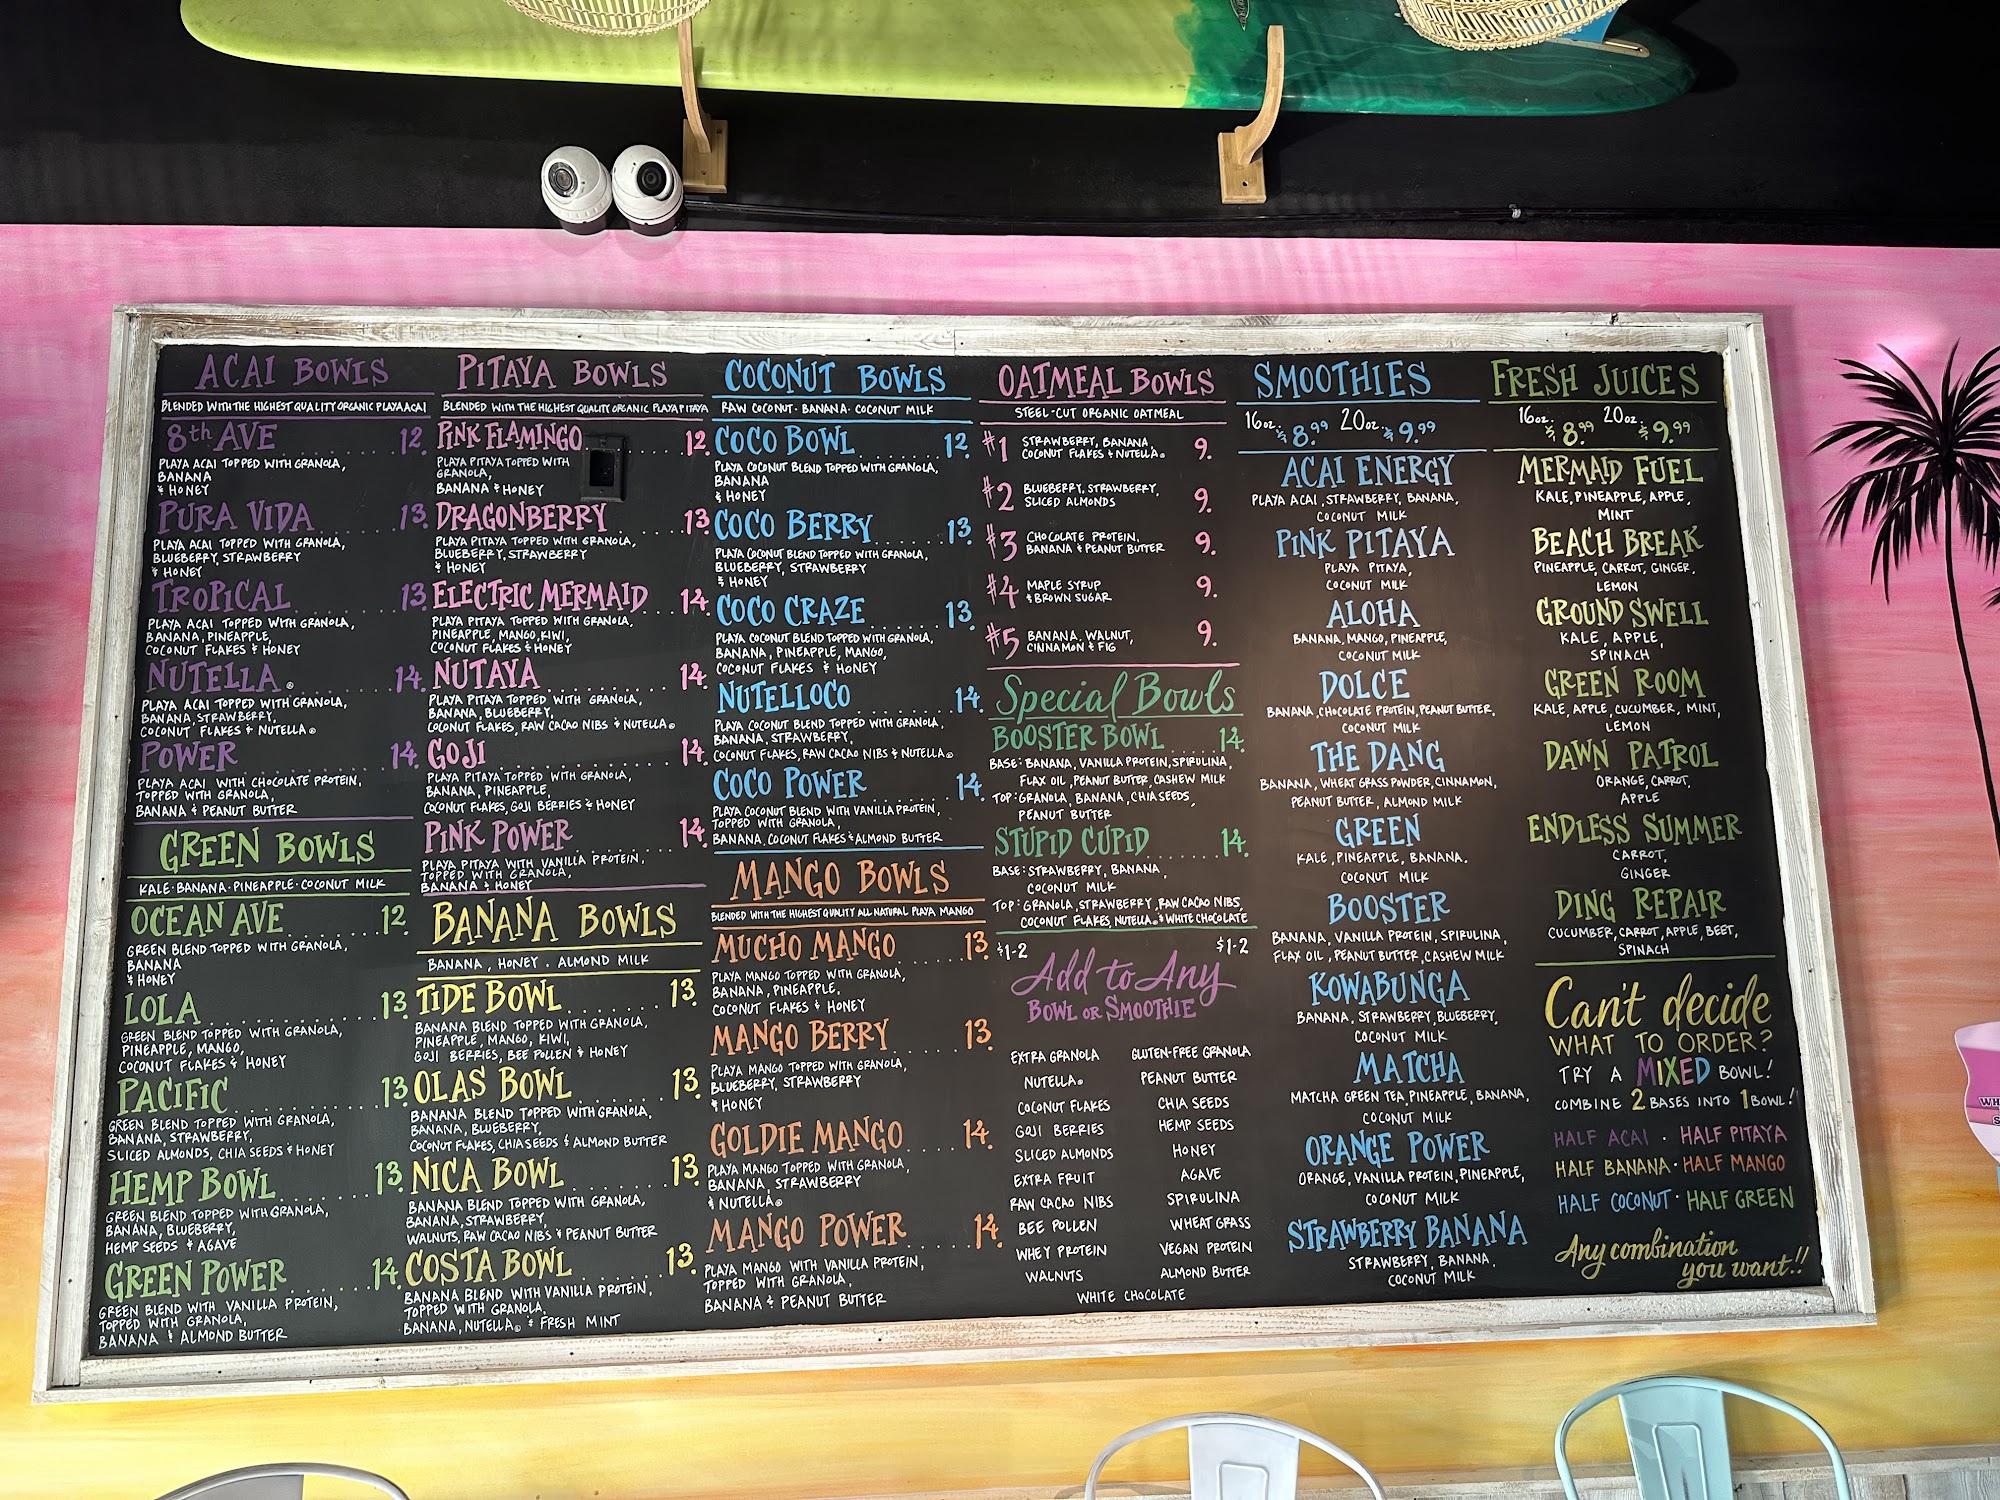 ACAI BOWLS
BLENDED WITH THE HIGHEST QUALITY ORGANIC PLAYA ACAI
8th AVE 12.
PLAYA ACAI TOPPED WITH GRANOLA,
BANANA
& HONEY
PURA VIDA 13.
PLAYA ACAI TOPPED WITH GRANOLA,
BLUEBERRY, STRAWBERRY
& HONEY
TROPICAL 13.
PLAYA ACAI TOPPED WITH GRANOLA,
BANANA, PINEAPPLE,
COCONUT FLAKES & HONEY
NUTELLA® 14.
PLAYA ACAI TOPPED WITH GRANOLA,
BANANA, STRAWBERRY,
COCONUT FLAKES & NUTELLA®
POWER 14.
PLAYA ACAI WITH CHOCOLATE PROTEIN,
TOPPED WITH GRANOLA,
BANANA & PEANUT BUTTER
GREEN BOWLS
KALE · BANANA · PINEAPPLE · COCONUT MILK
OCEAN AVE 12.
GREEN BLEND TOPPED WITH GRANOLA,
BANANA
& HONEY
LOLA 13.
GREEN BLEND TOPPED WITH GRANOLA,
PINEAPPLE, MANGO,
COCONUT FLAKES & HONEY
PACIFIC 13.
GREEN BLEND TOPPED WITH GRANOLA,
BANANA, STRAWBERRY,
SLICED ALMONDS, CHIA SEEDS & HONEY
HEMP BOWL 13.
GREEN BLEND TOPPED WITH GRANOLA,
BANANA, BLUEBERRY,
HEMP SEEDS & AGAVE
GREEN POWER 14.
GREEN BLEND WITH VANILLA PROTEIN,
TOPPED WITH GRANOLA,
BANANA & ALMOND BUTTER
PITAYA BOWLS
BLENDED WITH THE HIGHEST QUALITY ORGANIC PLAYA PITAYA
PINK FLAMINGO 12.
PLAYA PITAYA TOPPED WITH
GRANOLA,
BANANA & HONEY
DRAGONBERRY 13.
PLAYA PITAYA TOPPED WITH GRANOLA,
BLUEBERRY, STRAWBERRY
& HONEY
ELECTRIC MERMAID 14.
PLAYA PITAYA TOPPED WITH GRANOLA,
PINEAPPLE, MANGO, KIWI,
COCONUT FLAKES & HONEY
NUTAYA 14.
PLAYA PITAYA TOPPED WITH GRANOLA,
BANANA, BLUEBERRY,
COCONUT FLAKES, RAW CACAO NIBS & NUTELLA®
GOJI 14.
PLAYA PITAYA TOPPED WITH GRANOLA,
BANANA, PINEAPPLE,
COCONUT FLAKES, GOJI BERRIES & HONEY
PINK POWER 14.
PLAYA PITAYA WITH VANILLA PROTEIN,
TOPPED WITH GRANOLA,
BANANA & HONEY
BANANA BOWLS
BANANA, HONEY. ALMOND MILK
TIDE BOWL 13.
BANANA BLEND TOPPED WITH GRANOLA,
PINEAPPLE, MANGO, KIWI,
GOJI BERRIES, BEE POLLEN & HONEY
OLAS BOWL 13.
BANANA BLEND TOPPED WITH GRANOLA,
BANANA, BLUEBERRY,
COCONUT FLAKES, CHIA SEEDS & ALMOND BUTTER
NICA BOWL 13.
BANANA BLEND TOPPED WITH GRANOLA,
BANANA, STRAWBERRY,
WALNUTS, RAW CACAO NIBS & PEANUT BUTTER
COSTA BOWL 13.
BANANA BLEND WITH VANILLA PROTEIN,
TOPPED WITH GRANOLA,
BANANA, NUTELLA® & FRESH MINT
COCONUT BOWLS
RAW COCONUT · BANANA · COCONUT MILK
COCO BOWL 12.
PLAYA COCONUT BLEND TOPPED WITH GRANOLA,
BANANA
& HONEY
COCO BERRY 13.
PLAYA COCONUT BLEND TOPPED WITH GRANOLA,
BLUEBERRY, STRAWBERRY
& HONEY
COCO CRAZE 13.
PLAYA COCONUT BLEND TOPPED WITH GRANOLA,
BANANA, PINEAPPLE, MANGO,
COCONUT FLAKES & HONEY
NUTELLOCO 14.
PLAYA COCONUT BLEND TOPPED WITH GRANOLA,
BANANA, STRAWBERRY,
COCONUT FLAKES, RAW CACAO NIBS & NUTELLA®
COCO POWER 14.
PLAYA COCONUT BLEND WITH VANILLA PROTEIN,
TOPPED WITH GRANOLA,
BANANA, COCONUT FLAKES & ALMOND BUTTER
MANGO BOWLS
BLENDED WITH THE HIGHEST QUALITY ALL NATURAL PLAYA MANGO
MUCHO MANGO 13.
PLAYA MANGO TOPPED WITH GRANOLA,
BANANA, PINEAPPLE,
COCONUT FLAKES & HONEY
MANGO BERRY 13.
PLAYA MANGO TOPPED WITH GRANOLA,
BLUEBERRY, STRAWBERRY
& HONEY
GOLDIE MANGO 14.
PLAYA MANGO TOPPED WITH GRANOLA,
BANANA, STRAWBERRY
& NUTELLA®
MANGO POWER 14.
PLAYA MANGO WITH VANILLA PROTEIN,
TOPPED WITH GRANOLA,
BANANA & PEANUT BUTTER
OATMEAL BOWLS
STEEL-CUT ORGANIC OATMEAL
#1 STRAWBERRY, BANANA, 9.
COCONUT FLAKES & NUTELLA®
#2 BLUEBERRY, STRAWBERRY, 9.
SLICED ALMONDS
#3 CHOCOLATE PROTEIN, 9.
BANANA & PEANUT BUTTER
#4 MAPLE SYRUP 9.
& BROWN SUGAR
#5 BANANA, WALNUT, 9.
CINNAMON & FIG
Special Bowls
BOOSTER BOWL 14.
BASE: BANANA, VANILLA PROTEIN, SPIRULINA,
FLAX OIL, PEANUT BUTTER, CASHEW MILK
TOP: GRANOLA, BANANA, CHIA SEEDS,
PEANUT BUTTER
STUPID CUPID 14.
BASE: STRAWBERRY, BANANA,
COCONUT MILK
TOP: GRANOLA, STRAWBERRY, RAW CACAO NIBS,
COCONUT FLAKES, NUTELLA® & WHITE CHOCOLATE
$1-2 $1-2
Add to Any
BOWL OR SMOOTHIE
EXTRA GRANOLA GLUTEN-FREE GRANOLA
NUTELLA® PEANUT BUTTER
COCONUT FLAKES CHIA SEEDS
GOJI BERRIES HEMP SEEDS
SLICED ALMONDS HONEY
EXTRA FRUIT AGAVE
RAW CACAO NIBS SPIRULINA
BEE POLLEN WHEAT GRASS
WHEY PROTEIN VEGAN PROTEIN
WALNUTS ALMOND BUTTER
WHITE CHOCOLATE
SMOOTHIES
16oz. $8.99 20oz. $9.99
ACAI ENERGY
PLAYA ACAI, STRAWBERRY, BANANA,
COCONUT MILK
PINK PITAYA
PLAYA PITAYA,
COCONUT MILK
ALOHA
BANANA, MANGO, PINEAPPLE,
COCONUT MILK
DOLCE
BANANA, CHOCOLATE PROTEIN, PEANUT BUTTER,
COCONUT MILK
THE DANG
BANANA, WHEAT GRASS POWDER, CINNAMON,
PEANUT BUTTER, ALMOND MILK
GREEN
KALE, PINEAPPLE, BANANA,
COCONUT MILK
BOOSTER
BANANA, VANILLA PROTEIN, SPIRULINA,
FLAX OIL, PEANUT BUTTER, CASHEW MILK
KOWABUNGA
BANANA, STRAWBERRY, BLUEBERRY,
COCONUT MILK
MATCHA
MATCHA GREEN TEA, PINEAPPLE, BANANA,
COCONUT MILK
ORANGE POWER
ORANGE, VANILLA PROTEIN, PINEAPPLE,
COCONUT MILK
STRAWBERRY BANANA
STRAWBERRY, BANANA,
COCONUT MILK
FRESH JUICES
16oz. $8.99 20oz. $9.99
MERMAID FUEL
KALE, PINEAPPLE, APPLE,
MINT
BEACH BREAK
PINEAPPLE, CARROT, GINGER,
LEMON
GROUND SWELL
KALE, APPLE,
SPINACH
GREEN ROOM
KALE, APPLE, CUCUMBER, MINT,
LEMON
DAWN PATROL
ORANGE, CARROT,
APPLE
ENDLESS SUMMER
CARROT,
GINGER
DING REPAIR
CUCUMBER, CARROT, APPLE, BEET,
SPINACH
Can't decide
WHAT TO ORDER?
TRY A MIXED BOWL!
COMBINE 2 BASES INTO 1 BOWL!
HALF ACAI · HALF PITAYA
HALF BANANA · HALF MANGO
HALF COCONUT · HALF GREEN
Any combination
you want!!